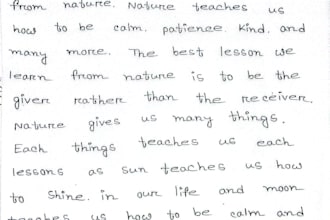 from nature. Nature teaches us
how to be calm, patience. Kind, and
many more. The best lesson we
learn from nature is to be the
giver rather than the receiver.
Nature gives us many things.
Each things teaches us each
lessons as sun teaches us how
to shine. in our life and moon
teaches us how to be calm and